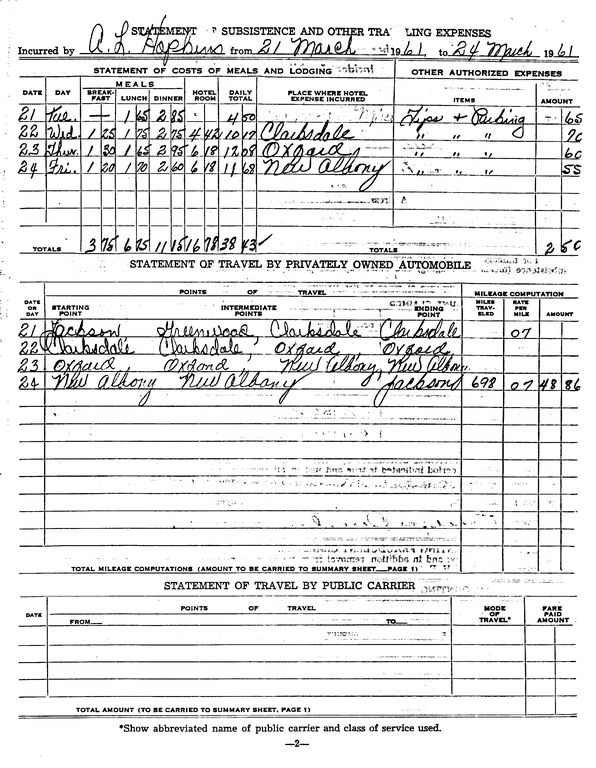 STATEMENT OF SUBSISTENCE AND OTHER TRAVELING EXPENSES
Incurred by A. L. Hopkins from 21 March 1961, to 24 March 1961
STATEMENT OF COSTS OF MEALS AND LODGING OTHER AUTHORIZED EXPENSES
DATE DAY MEALS BREAK-FAST LUNCH DINNER HOTEL ROOM DAILY TOTAL PLACE WHERE HOTEL EXPENSE INCURRED ITEMS AMOUNT
21 Tue. — 1 65 2 85 4 50 Tips + Parking 65
22 Wed. 1 25 1 75 2 75 4 42 10 17 Clarksdale " " " 70
23 Thur. 1 30 1 65 2 95 6 18 12 08 Oxford " " " 60
24 Fri. 1 20 1 70 2 60 6 18 11 68 New Albany " " " 55
TOTALS 3 75 6 75 11 15 16 78 38 43 TOTALS 2 50
STATEMENT OF TRAVEL BY PRIVATELY OWNED AUTOMOBILE
POINTS OF TRAVEL MILEAGE COMPUTATION
DATE OR DAY STARTING POINT INTERMEDIATE POINTS ENDING POINT MILES TRAV-ELED RATE PER MILE AMOUNT
21 Jackson Greenwood, Clarksdale Clarksdale 07
22 Clarksdale Clarksdale, Oxford Oxford
23 Oxford, Oxford New Albany, New Albany
24 New Albany New Albany Jackson 698 07 48 86
TOTAL MILEAGE COMPUTATIONS (AMOUNT TO BE CARRIED TO SUMMARY SHEET—PAGE 1)
STATEMENT OF TRAVEL BY PUBLIC CARRIER
DATE POINTS OF TRAVEL MODE OF TRAVEL* FARE PAID AMOUNT
FROM— TO—
TOTAL AMOUNT (TO BE CARRIED TO SUMMARY SHEET, PAGE 1)
*Show abbreviated name of public carrier and class of service used.
—2—